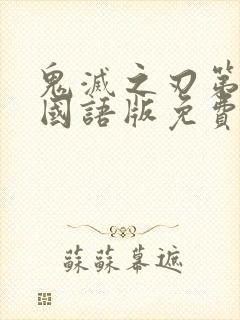 鬼滅之刃第
國語版免費
蘇蘇幕遮